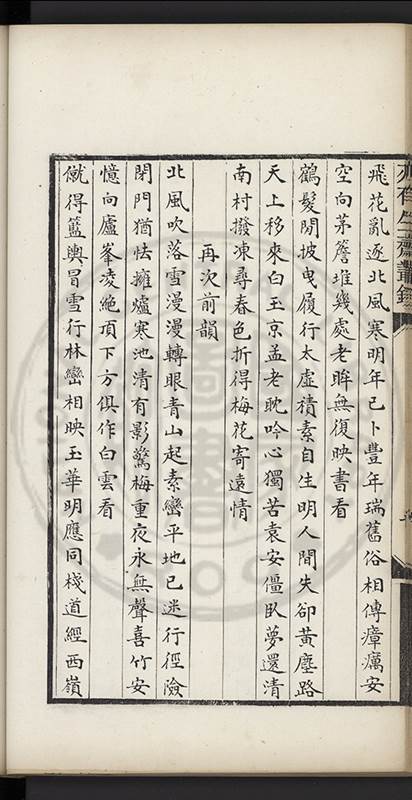 飛花亂逐北風寒明年已卜豐年瑞舊俗相傳瘴癘安
空向茅簷堆幾處老眸無復映書看
鶴髮閒披曳履行太虛積素自生明人間失卻黃塵路
天上移來白玉京孟老耽吟心獨苦袁安僵臥夢還清
南村撥凍尋春色折得梅花寄遠情
再次前韻
北風吹落雪漫漫轉眼青山起素巒平地已迷行徑險
閉門猶怯擁爐寒池清有影驚梅重夜永無聲喜竹安
憶向廬峯凌絶頂下方俱作白雲看
僦得籃輿冒雪行林巒相映玉華明應同棧道經西嶺